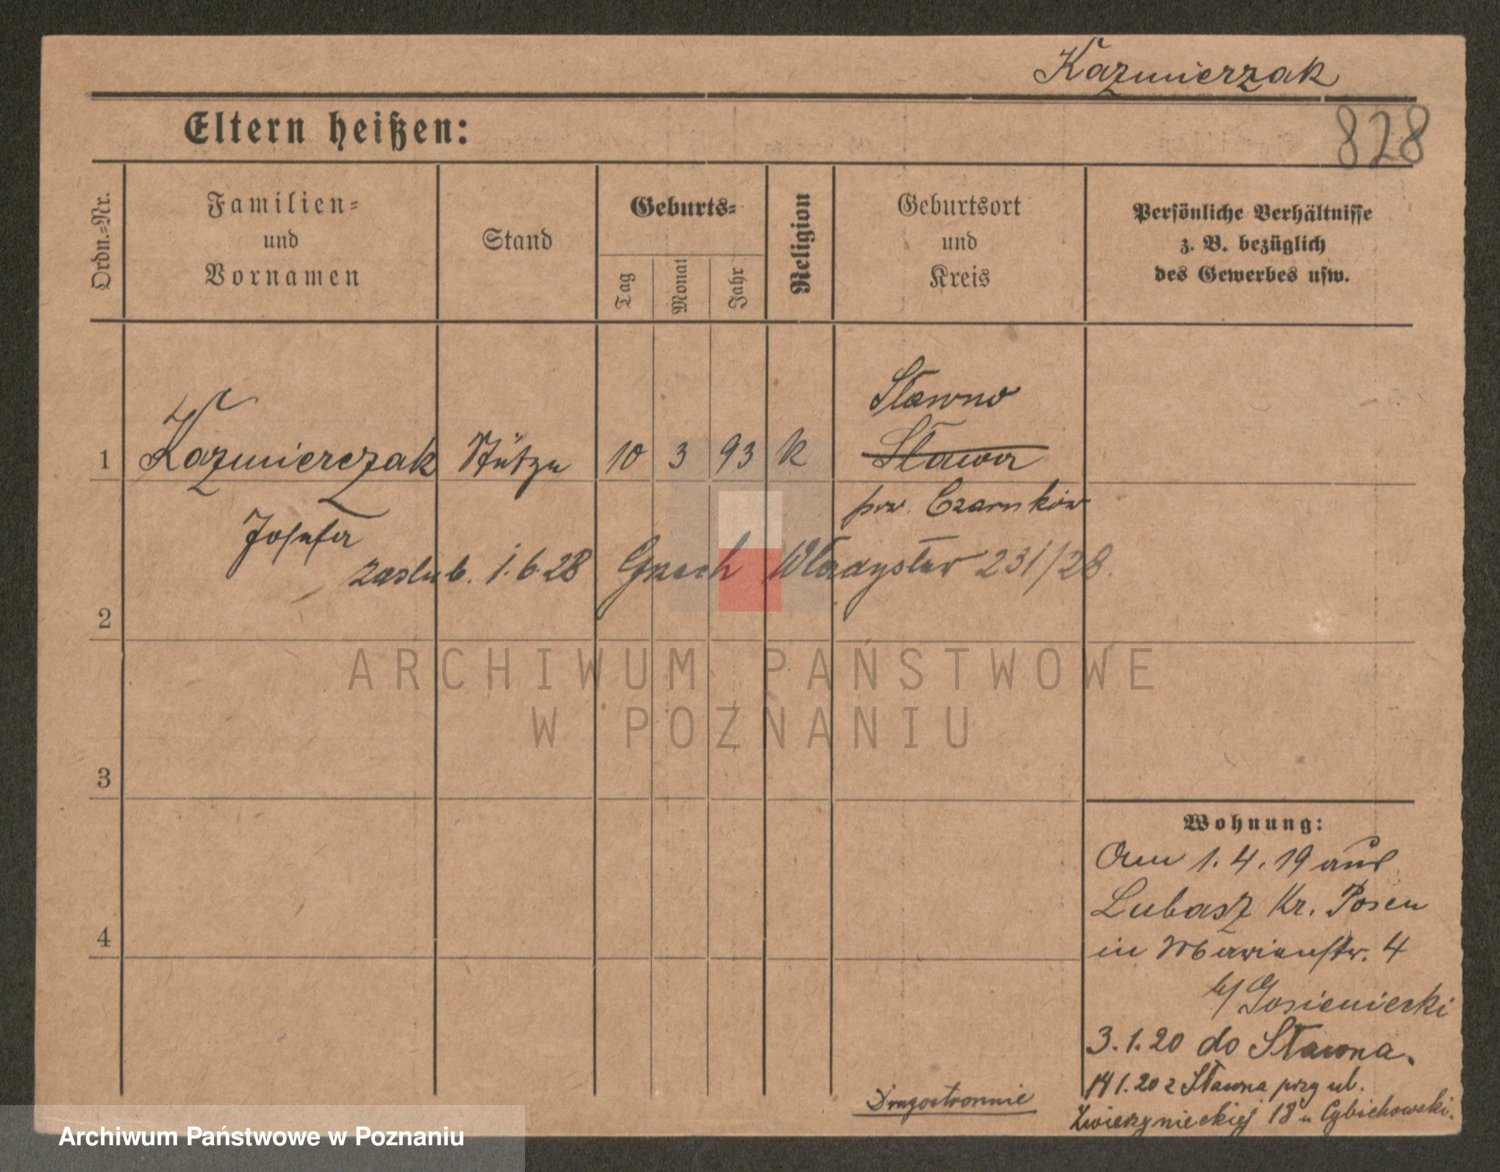 Kazmierzak
Eltern heißen:
828
Ordn.=Nr.
Familien=
und
Vornamen
Stand
Geburts=
Tag
Monat
Jahr
Religion
Geburtsort
und
Kreis
Persönliche Verhältnisse
z. B. bezüglich
des Gewerbes usw.
Sławno
1 Kazmierczak Stütze 10 3 93 k Sława
pow. Czarnków
Josefa
zaślub. 1.6.28 Gnech Władysław 231/28.
2
3
4
Wohnung:
Am 1.4.19 aus
Lubasz Kr. Posen
in Marienstr. 4
b/ Gosieniecki
3.1.20 do Sławna.
14 1.20 z Sławna przy ul.
Zwierzynieckiej 18 u Cybichowski.
Drugostronnie
ARCHIWUM PAŃSTWOWE
W POZNANIU
Archiwum Państwowe w Poznaniu